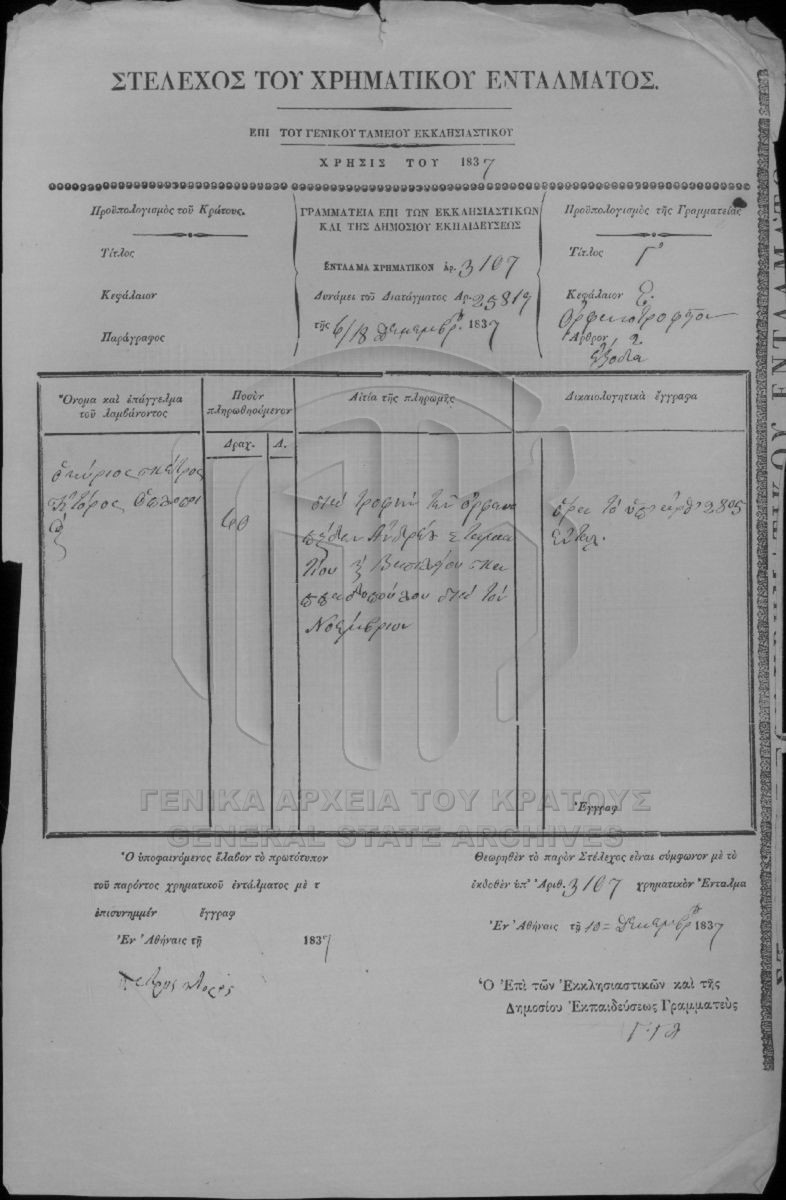 ΣΤΕΛΕΧΟΣ ΤΟΥ ΧΡΗΜΑΤΙΚΟΥ ΕΝΤΑΛΜΑΤΟΣ.
ΕΠΙ ΤΟΥ ΓΕΝΙΚΟΥ ΤΑΜΕΙΟΥ ΕΚΚΛΗΣΙΑΣΤΙΚΟΥ
ΧΡΗΣΙΣ ΤΟΥ 1837
Προϋπολογισμὸς τοῦ Κράτους.
Τίτλος
Κεφάλαιον
Παράγραφος
ΓΡΑΜΜΑΤΕΙΑ ΕΠΙ ΤΩΝ ΕΚΚΛΗΣΙΑΣΤΙΚΩΝ
ΚΑΙ ΤΗΣ ΔΗΜΟΣΙΟΥ ΕΚΠΑΙΔΕΥΣΕΩΣ
ΕΝΤΑΛΜΑ ΧΡΗΜΑΤΙΚΟΝ ἀρ. 3107
Δυνάμει τοῦ Διατάγματος Αρ. 25819
τῆς 6/18 Δεκεμβρ. 1837
Προϋπολογισμὸς τῆς Γραμματείας
Τίτλος Γ'
Κεφάλαιον Ε.
Ὀρφανοτροφεῖον
Αρθρον 2.
Ἔξοδα
Ὄνομα καὶ ἐπάγγελμα
τοῦ λαμβάνοντος
Ποσὸν
πληρωθησόμενον
Αἰτία τῆς πληρωμῆς
Δικαιολογητικὰ ἔγγραφα
Δραχ. Λ.
ὁ κύριος Πέτρος
60
διὰ τροφὴν τῶν ὀρφανῶν
Ἀνδρέα Σταμα
τίου ἢ Βασιλείου Πα
πούλου διὰ τὸν
Νοέμβριον
ὅρα τὸ ὑπ' ἀρθ 2805
ἔνταλ.
Ἔγγραφ
ΓΕΝΙΚΑ ΑΡΧΕΙΑ ΤΟΥ ΚΡΑΤΟΥΣ
GENERAL STATE ARCHIVES
Ὁ ὑποφαινόμενος ἔλαβον τὸ πρωτότυπον
τοῦ παρόντος χρηματικοῦ ἐντάλματος μὲ τ
ἐπισυνημμέν ἔγγραφ
Ἐν Ἀθήναις τῇ 1837
Θεωρηθὲν τὸ παρὸν Στέλεχος εἶναι σύμφωνον μὲ τὸ
ἐκδοθὲν ὑπ' Ἀριθ. 3107 χρηματικὸν Ἔνταλμα
Ἐν Ἀθήναις τῇ 10 = Δεκεμβρ 1837
Ὁ Ἐπὶ τῶν Ἐκκλησιαστικῶν καὶ τῆς
Δημοσίου Ἐκπαιδεύσεως Γραμματεὺς